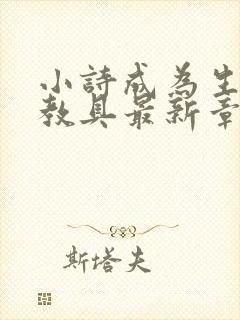 小詩成為生
教具最新章
斯塔夫